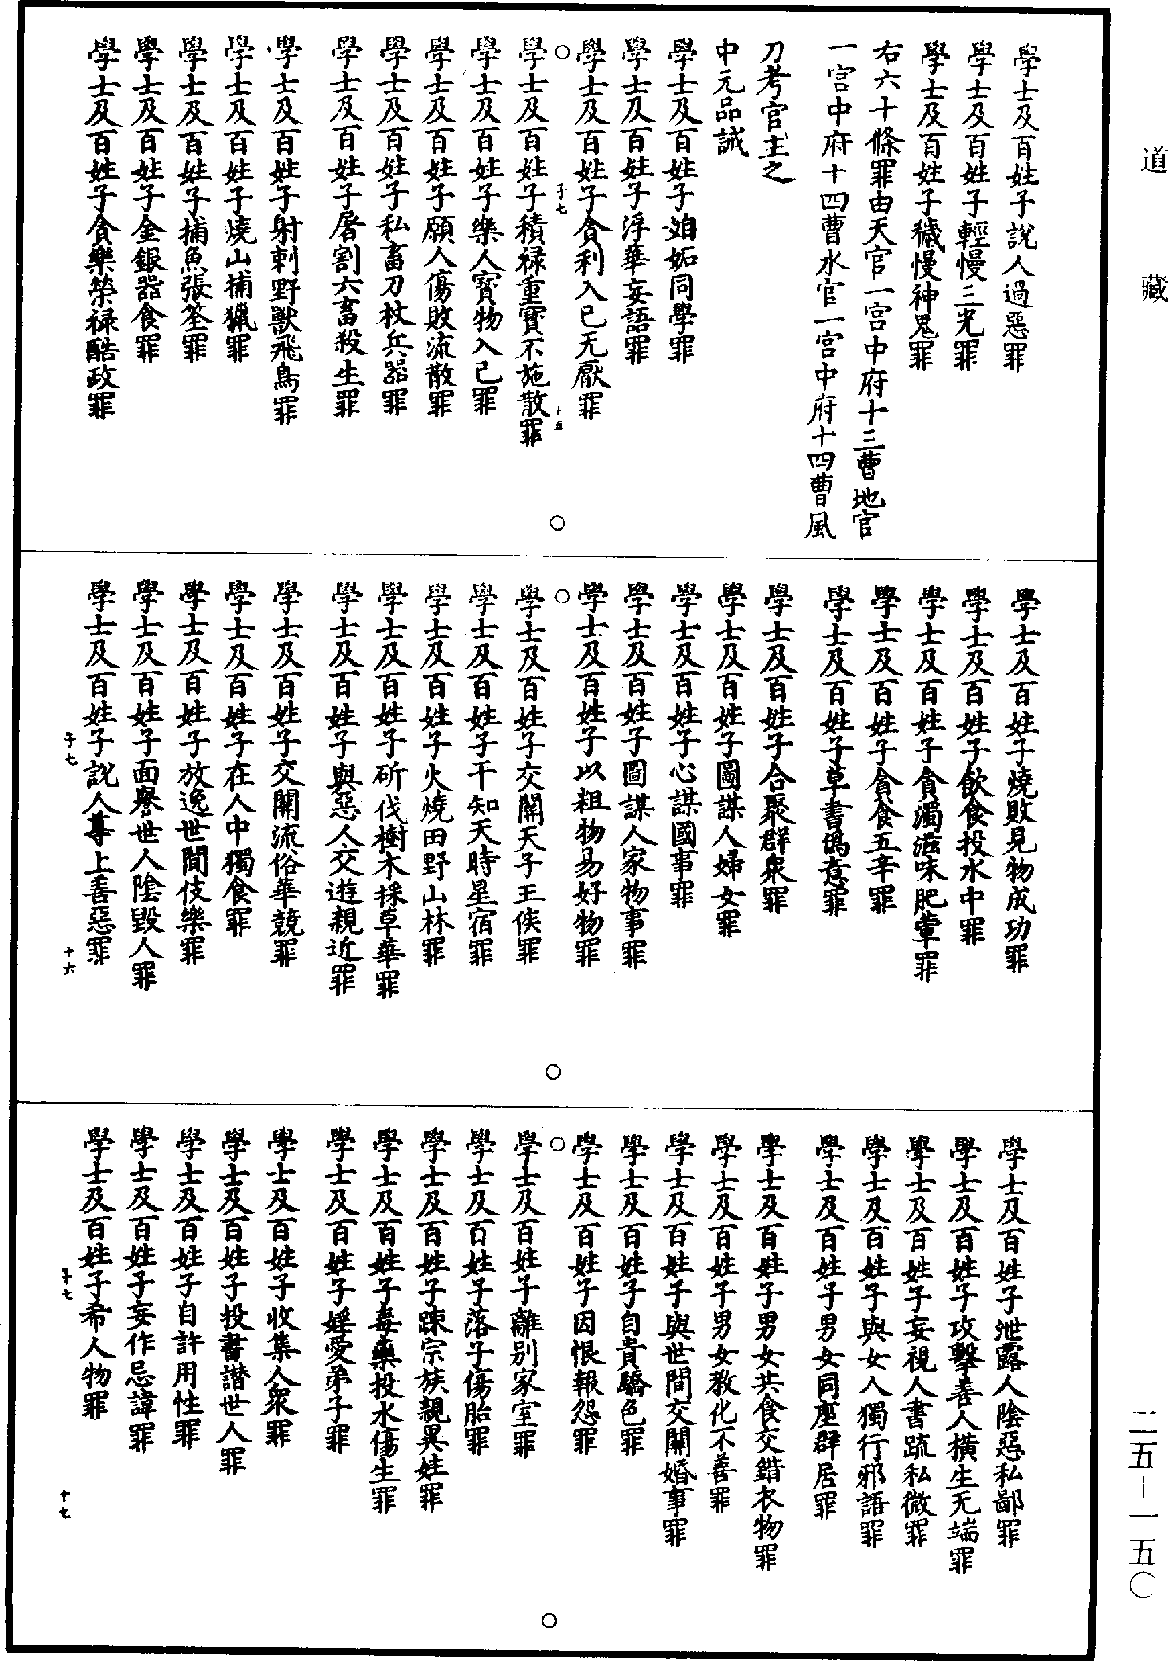 道藏
學士及百姓子說人過惡罪
學士及百姓子輕慢三光罪
學士及百姓子穢慢神鬼罪
右六十條罪由天官一宮中府十三曹地官
一宮中府十四曹水官一宮中府十四曹風
刀考官主之
中元品誡
學士及百姓子妬同學罪
學士及百姓子浮華妄語罪
學士及百姓子貪利入己无厭罪
學士及百姓子積祿重寶不施散罪
學士及百姓子樂人寶物入己罪
學士及百姓子願人傷敗流散罪
學士及百姓子私畜刀杖兵器罪
學士及百姓子屠割六畜殺生罪
學士及百姓子射刺野獸飛鳥罪
學士及百姓子燒山捕獵罪
學士及百姓子捕魚張筌罪
學士及百姓子金銀器食罪
學士及百姓子貪樂榮祿酷政罪
子七
十五
學士及百姓子燒敗見物成功罪
學士及百姓子飲食投水中罪
學士及百姓子貪濁滋味肥葷罪
學士及百姓子貪食五辛罪
學士及百姓子草書僞意罪
學士及百姓子合聚群衆罪
學士及百姓子圖謀人婦女罪
學士及百姓子心謀國事罪
學士及百姓子圖謀人家物事罪
學士及百姓子以粗物易好物罪
學士及百姓子交關天子王侯罪
學士及百姓子干知天時星宿罪
學士及百姓子火燒田野山林罪
學士及百姓子斫伐樹木採草華罪
學士及百姓子與惡人交遊親近罪
學士及百姓子交關流俗華競罪
學士及百姓子在人中獨食罪
學士及百姓子放逸世間伎樂罪
學士及百姓子面譽世人陰毀人罪
學士及百姓子說人尊上善惡罪
子七
十六
學士及百姓子泄露人陰惡私鄙罪
學士及百姓子攻擊善人橫生无端罪
學士及百姓子妄視人書疏私微罪
學士及百姓子與女人獨行邪語罪
學士及百姓子男女同座群居罪
學士及百姓子男女共食交錯衣物罪
學士及百姓子男女教化不善罪
學士及百姓子與世間交關婚事罪
學士及百姓子自貴驕色罪
學士及百姓子因恨報怨罪
學士及百姓子離別家室罪
學士及百姓子落子傷胎罪
學士及百姓子踈宗族親異姓罪
學士及百姓子毒藥投水傷生罪
學士及百姓子婬愛弟子罪
學士及百姓子收集人衆罪
學士及百姓子投書譖世人罪
學士及百姓子自許用性罪
學士及百姓子妄作忌諱罪
學士及百姓子希人物罪
子七
十七
二五—一五〇